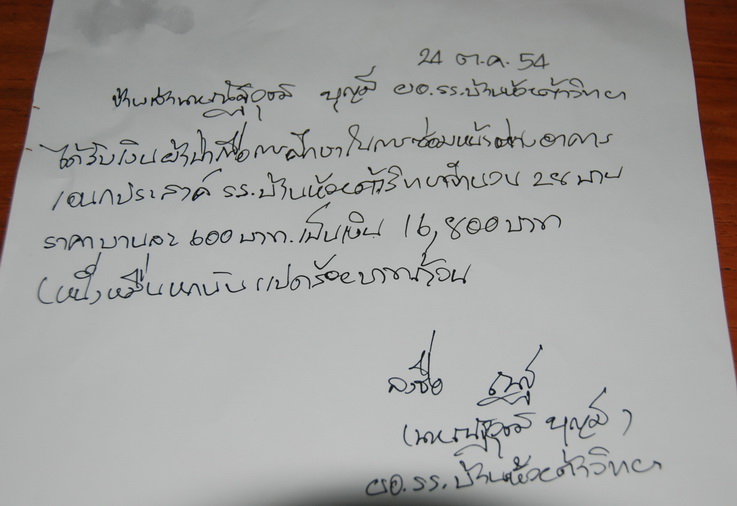 24 ต.ค. 54
ข้าพเจ้านาย บุญมี ผอ.รร.บ้านห้วยต้าวิทยา
ได้รับเงินผ้าป่าเพื่อการศึกษาในการซ่อมหน้าต่าง อาคาร
เอนกประสงค์ รร.บ้านห้วยต้าวิทยาจำนวน 28 บาน
ราคาบานละ 600 บาท.เป็นเงิน 16,800 บาท
(หนึ่งหมื่นหกพันแปดร้อยบาทถ้วน
ลงชื่อ
(นาย บุญมี)
ผอ.รร.บ้านห้วยต้าวิทยา